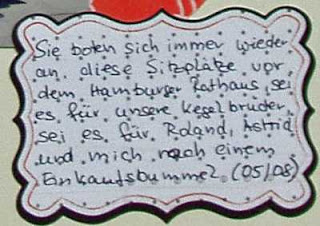 Sie boten sich immer wieder
an, diese Sitzplätze vor
dem Hamburger Rathaus, sei
es für unsere Kegelbrüder,
sei es für Roland, Astrid
und mich nach einem
Einkaufsbummel. (05/08)